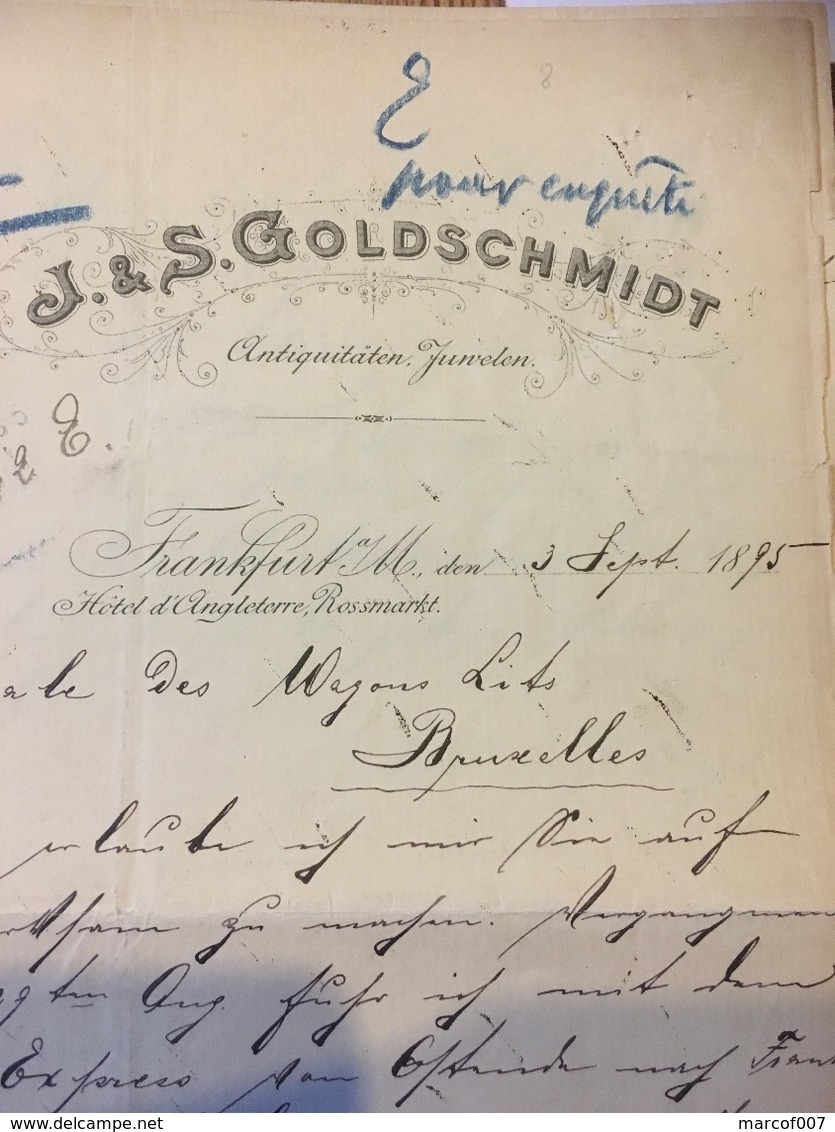 E
pour enquête
J. & S. GOLDSCHMIDT
Antiquitäten, Juwelen.
2 E.
Frankfurt a/M., den 3 Sept. 1895
Hôtel d'Angleterre, Rossmarkt.
ale des Wagons Lits
Bruxelles
erlaube ich mir Sie auf
rksam zu machen. Vergangenen
9ten Aug. fuhr ich mit dem
Express von Ostende nach Frank
delcampe.net
marcof007